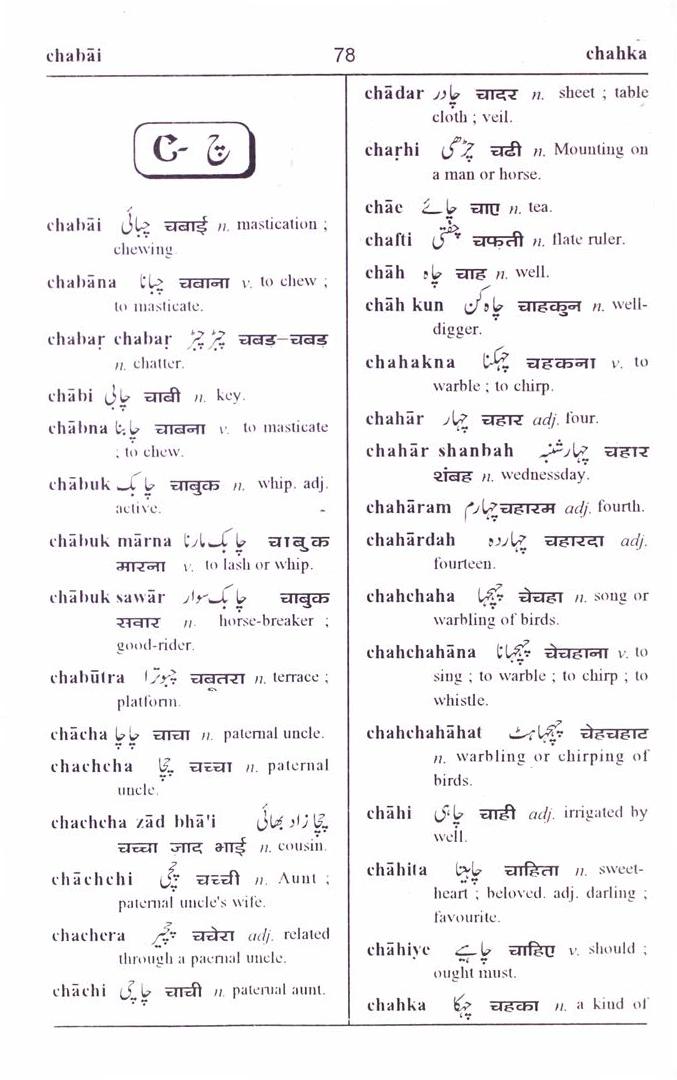 chabāi 78 chahka
C- چ
chabāi چبائی चबाई n. mastication ;
chewing.
chabāna چبانا चबाना v. to chew ;
to masticate.
chabaṛ chabaṛ چبڑ چبڑ चबड़-चबड़
n. chatter.
chābi چابی चाबी n. key.
chābna چابنا चाबना v. to masticate
; to chew.
chābuk چابک चाबुक n. whip. adj.
active.
chābuk mārna چابک مارنا चाबुक
मारना v. to lash or whip.
chābuk sawār چابک سوار चाबुक
सवार n. horse-breaker ;
good-rider.
chabūtra چبوترا चबूतरा n. terrace ;
platform.
chācha چاچا चाचा n. paternal uncle.
chachcha چچا चच्चा n. paternal
uncle.
chachcha zād bhā'i چچا زاد بھائی
चच्चा जाद भाई n. cousin.
chāchchi چچی चच्ची n. Aunt ;
paternal uncle's wife.
chachera چچیرا चचेरा adj. related
through a paernal uncle.
chāchi چاچی चाची n. paternal aunt.
chādar چادر चादर n. sheet ; table
cloth ; veil.
chaṛhi چڑھی चढी n. Mounting on
a man or horse.
chāe چائے चाए n. tea.
chafti چفتی चफती n. flate ruler.
chāh چاہ चाह n. well.
chāh kun چاہ کن चाहकुन n. well-
digger.
chahakna چہکنا चहकना v. to
warble ; to chirp.
chahār چہار चहार adj. four.
chahār shanbah چہار شنبہ चहार
शंबह n. wednesday.
chahāram چہارم चहारम adj. fourth.
chahārdah چہاردہ चहारदा adj.
fourteen.
chahchaha چہچہا चेचहा n. song or
warbling of birds.
chahchahāna چہچہانا चेचहाना v. to
sing ; to warble ; to chirp ; to
whistle.
chahchahāhat چہچہاہٹ चेहचहाट
n. warbling or chirping of
birds.
chāhi چاہی चाही adj. irrigated by
well.
chāhita چاہیتا चाहिता n. sweet-
heart ; beloved. adj. darling ;
favourite.
chāhiye چاہیے चाहिए v. should ;
ought must.
chahka چہکا चहका n. a kind of